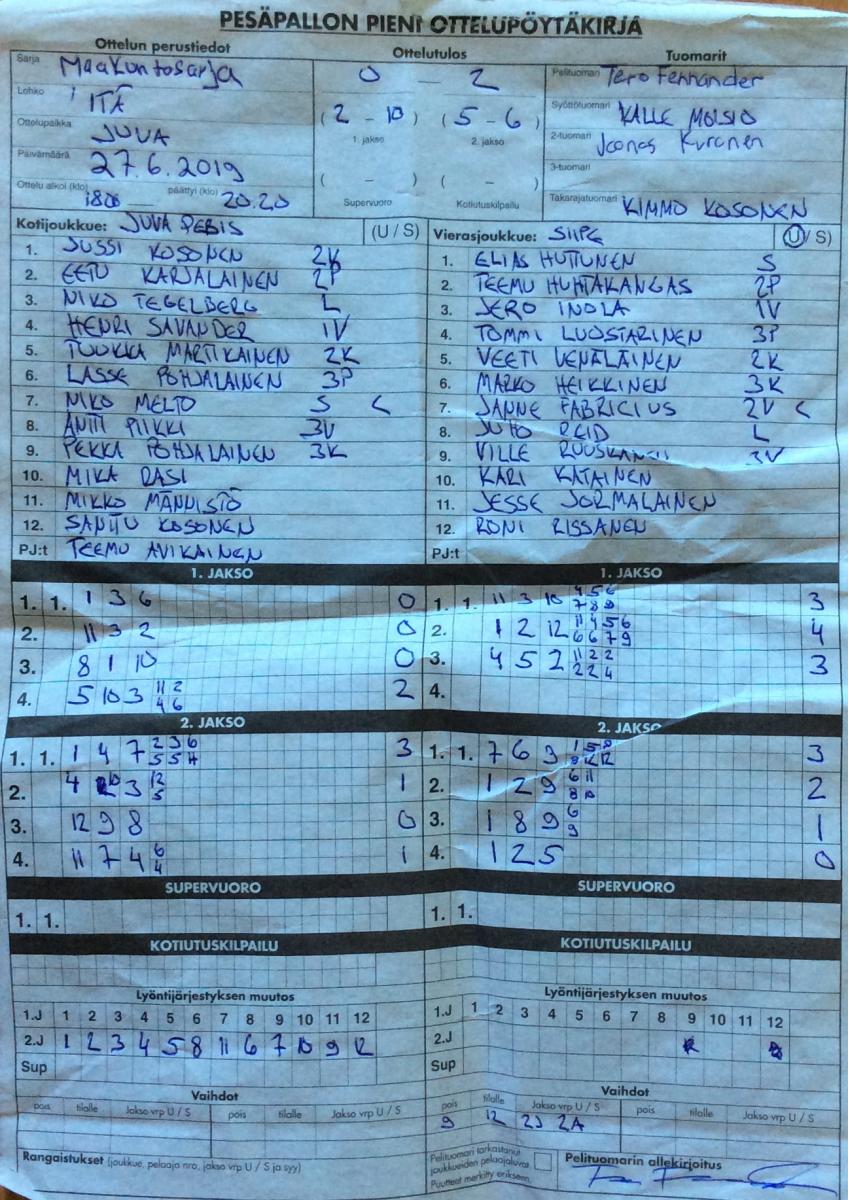 PESÄPALLON PIENI OTTELUPÖYTÄKIRJA
Ottelun perustiedot Ottelutulos Tuomarit
Sarja Maakuntasarja
Lohko ITÄ
Ottelupaikka JUVA
Päivämäärä 27.6.2019
Ottelu alkoi (klo) 1800 päättyi (klo) 20.20
0 - 2
(2 - 10) (5 - 6)
1. jakso 2. jakso
( - ) ( - )
Supervuoro Kotiutuskilpailu
Pelituomari Tero Fernander
Syöttötuomari KALLE MOISIO
2-tuomari Joonas Kuronen
3-tuomari
Takarajatuomari KIMMO KOSONEN
Kotijoukkue: JUVA PEBIS (U / S)
1. JUSSI KOSONEN 2K
2. EETU KARJALAINEN 2P
3. NIKO TEGELBERG L
4. HENRI SAVANDER 1V
5. TUUKKA MARTIKAINEN 2K
6. LASSE POHJALAINEN 3P
7. NIKO MELTO S <
8. ANTTI PIIKKI 3V
9. PEKKA POHJALAINEN 3K
10. MIKA RASI
11. MIKKO MÄNNISTÖ
12. SANTTU KOSONEN
PJ:t TEEMU AVIKAINEN
Vierasjoukkue: SIIPE (U / S)
1. ELIAS HUTTUNEN S
2. TEEMU HUHTAKANGAS 2P
3. JERO INOLA 1V
4. TOMMI LUOSTARINEN 3P
5. VEETI VENÄLÄINEN 2K
6. MARKO HEIKKINEN 3K
7. JANNE FABRICIUS 2V <
8. JUHO REID L
9. VILLE RUUSKANEN 3V
10. KARI KATAINEN
11. JESSE JORMALAINEN
12. RONI RISSANEN
PJ:t
1. JAKSO
1. 1. 1 3 6 0
2. 11 3 2 0
3. 8 1 10 0
4. 5 10 3 11 2 4 6 2
1. JAKSO
1. 1. 11 3 10 4 5 6 7 8 9 3
2. 1 2 12 11 4 5 6 6 6 7 9 4
3. 4 5 2 11 2 2 2 2 4 3
4.
2. JAKSO
1. 1. 1 4 7 2 3 6 5 5 11 3
2. 4 10 3 12 5 1
3. 12 9 8 0
4. 11 7 4 6 4 1
2. JAKSO
1. 1. 7 6 3 1 5 8 8 12 12 3
2. 1 2 9 6 11 8 10 2
3. 1 8 9 6 9 1
4. 1 2 5 0
SUPERVUORO SUPERVUORO
1. 1. 1. 1.
KOTIUTUSKILPAILU KOTIUTUSKILPAILU
Lyöntijärjestyksen muutos
1.J 1 2 3 4 5 6 7 8 9 10 11 12
2.J 1 2 3 4 5 8 11 6 7 10 9 12
Sup
Lyöntijärjestyksen muutos
1.J 1 2 3 4 5 6 7 8 9 10 11 12
2.J
Sup
Vaihdot
pois tilalle Jakso vrp U / S pois tilalle Jakso vrp U / S
Vaihdot
pois tilalle Jakso vrp U / S pois tilalle Jakso vrp U / S
9 12 2J 2A
Rangaistukset (joukkue, pelaaja nro, jakso vrp U / S ja syy)
Pelituomari tarkastanut
joukkueiden pelaajaluvat.
Puutteet merkitty erikseen.
Pelituomarin allekirjoitus